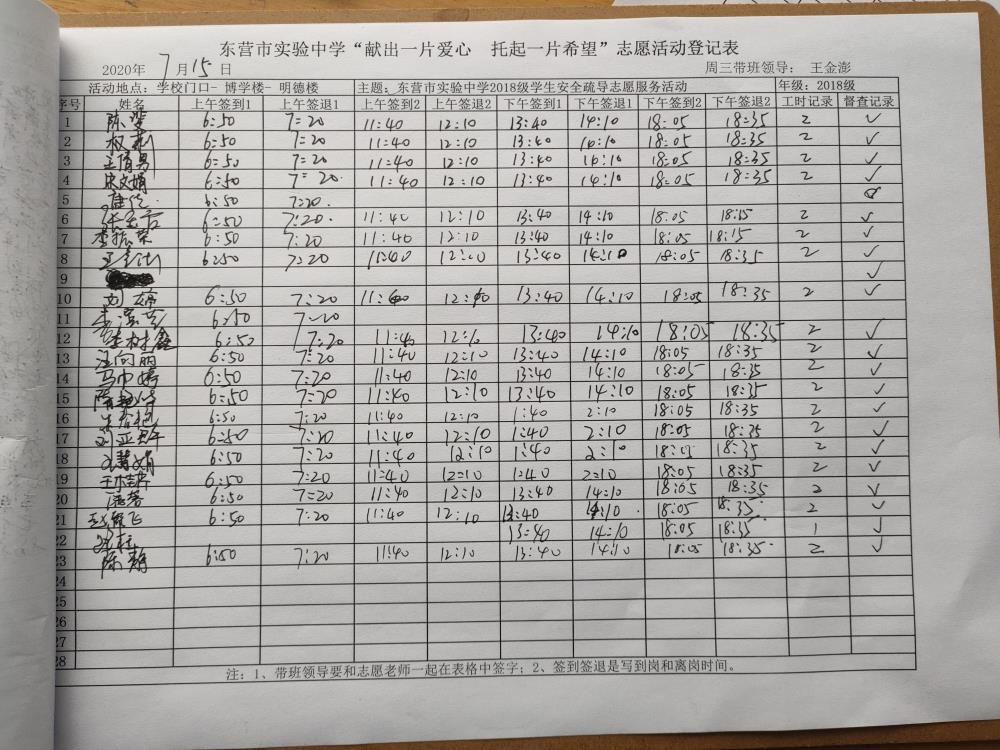 东营市实验中学“献出一片爱心 托起一片希望”志愿活动登记表
2020年 7月15日 周三带班领导： 王金澎
活动地点：学校门口- 博学楼- 明德楼 主题：东营市实验中学2018级学生安全疏导志愿服务活动 年级：2018级
序号 姓名 上午签到1 上午签退1 上午签到2 上午签退2 下午签到1 下午签退1 下午签到2 下午签退2 工时记录 督查记录
1 陈 6:50 7:20 11:40 12:10 13:40 14:10 18:05 18:35 2 ✓
2 6:50 7:20 11:40 12:10 13:40 14:10 18:05 18:35 2 ✓
3 6:50 7:20 11:40 12:10 13:40 14:10 18:05 18:35 2 ✓
4 宋文娟 6:50 7:20. 11:40 12:10 13:40 14:10 18:05 18:35 2 ✓
5 6:50 7:20.
6 6:50 7:20. 11:40 12:10 13:40 14:10 18:05 18:15 2 ✓
7 李振荣 6:50 7:20 11:40 12:10 13:40 14:10 18:05 18:15 2 ✓
8 6:50 7:20 11:40 12:10 13:40 14:10 18:05 18:35 2 ✓
9 ✓
10 刘婷 6:50 7:20 11:40 12:10 13:40 14:10 18:05 18:35 2 ✓
11 6:50 7:20
12 6:50 7:20 11:40 13:40 14:10 18:05 18:35 2 ✓
13 汪向丽 6:50 7:20 11:40 12:10 13:40 14:10 18:05 18:35 2 ✓
14 马巾婷 6:50 7:20 11:40 12:10 13:40 14:10 18:05 18:35 2 ✓
15 6:50 7:20 11:40 12:10 13:40 14:10 18:05 18:35 2 ✓
16 6:50 7:20 11:40 12:10 1:40 2:10 18:05 18:35 2 ✓
17 6:50 7:20 11:40 12:10 1:40 2:10 18:05 18:35 2 ✓
18 6:50 7:20 11:40 12:10 1:40 2:10 18:05 18:35 2 ✓
19 6:50 7:20 11:40 12:10 1:40 2:10 18:05 18:35 2 ✓
20 6:50 7:20 11:40 12:10 13:40 14:10 18:05 18:35 2 ✓
21 6:50 7:20 11:40 12:10 13:40 14:10 18:05 18:35 2 ✓
22 13:40 14:10 18:05 18:35 1 ✓
23 陈 6:50 7:20 11:40 12:10 13:40 14:10 18:05 18:35 2 ✓
24
25
26
27
28
注：1、带班领导要和志愿老师一起在表格中签字；2、签到签退是写到岗和离岗时间。